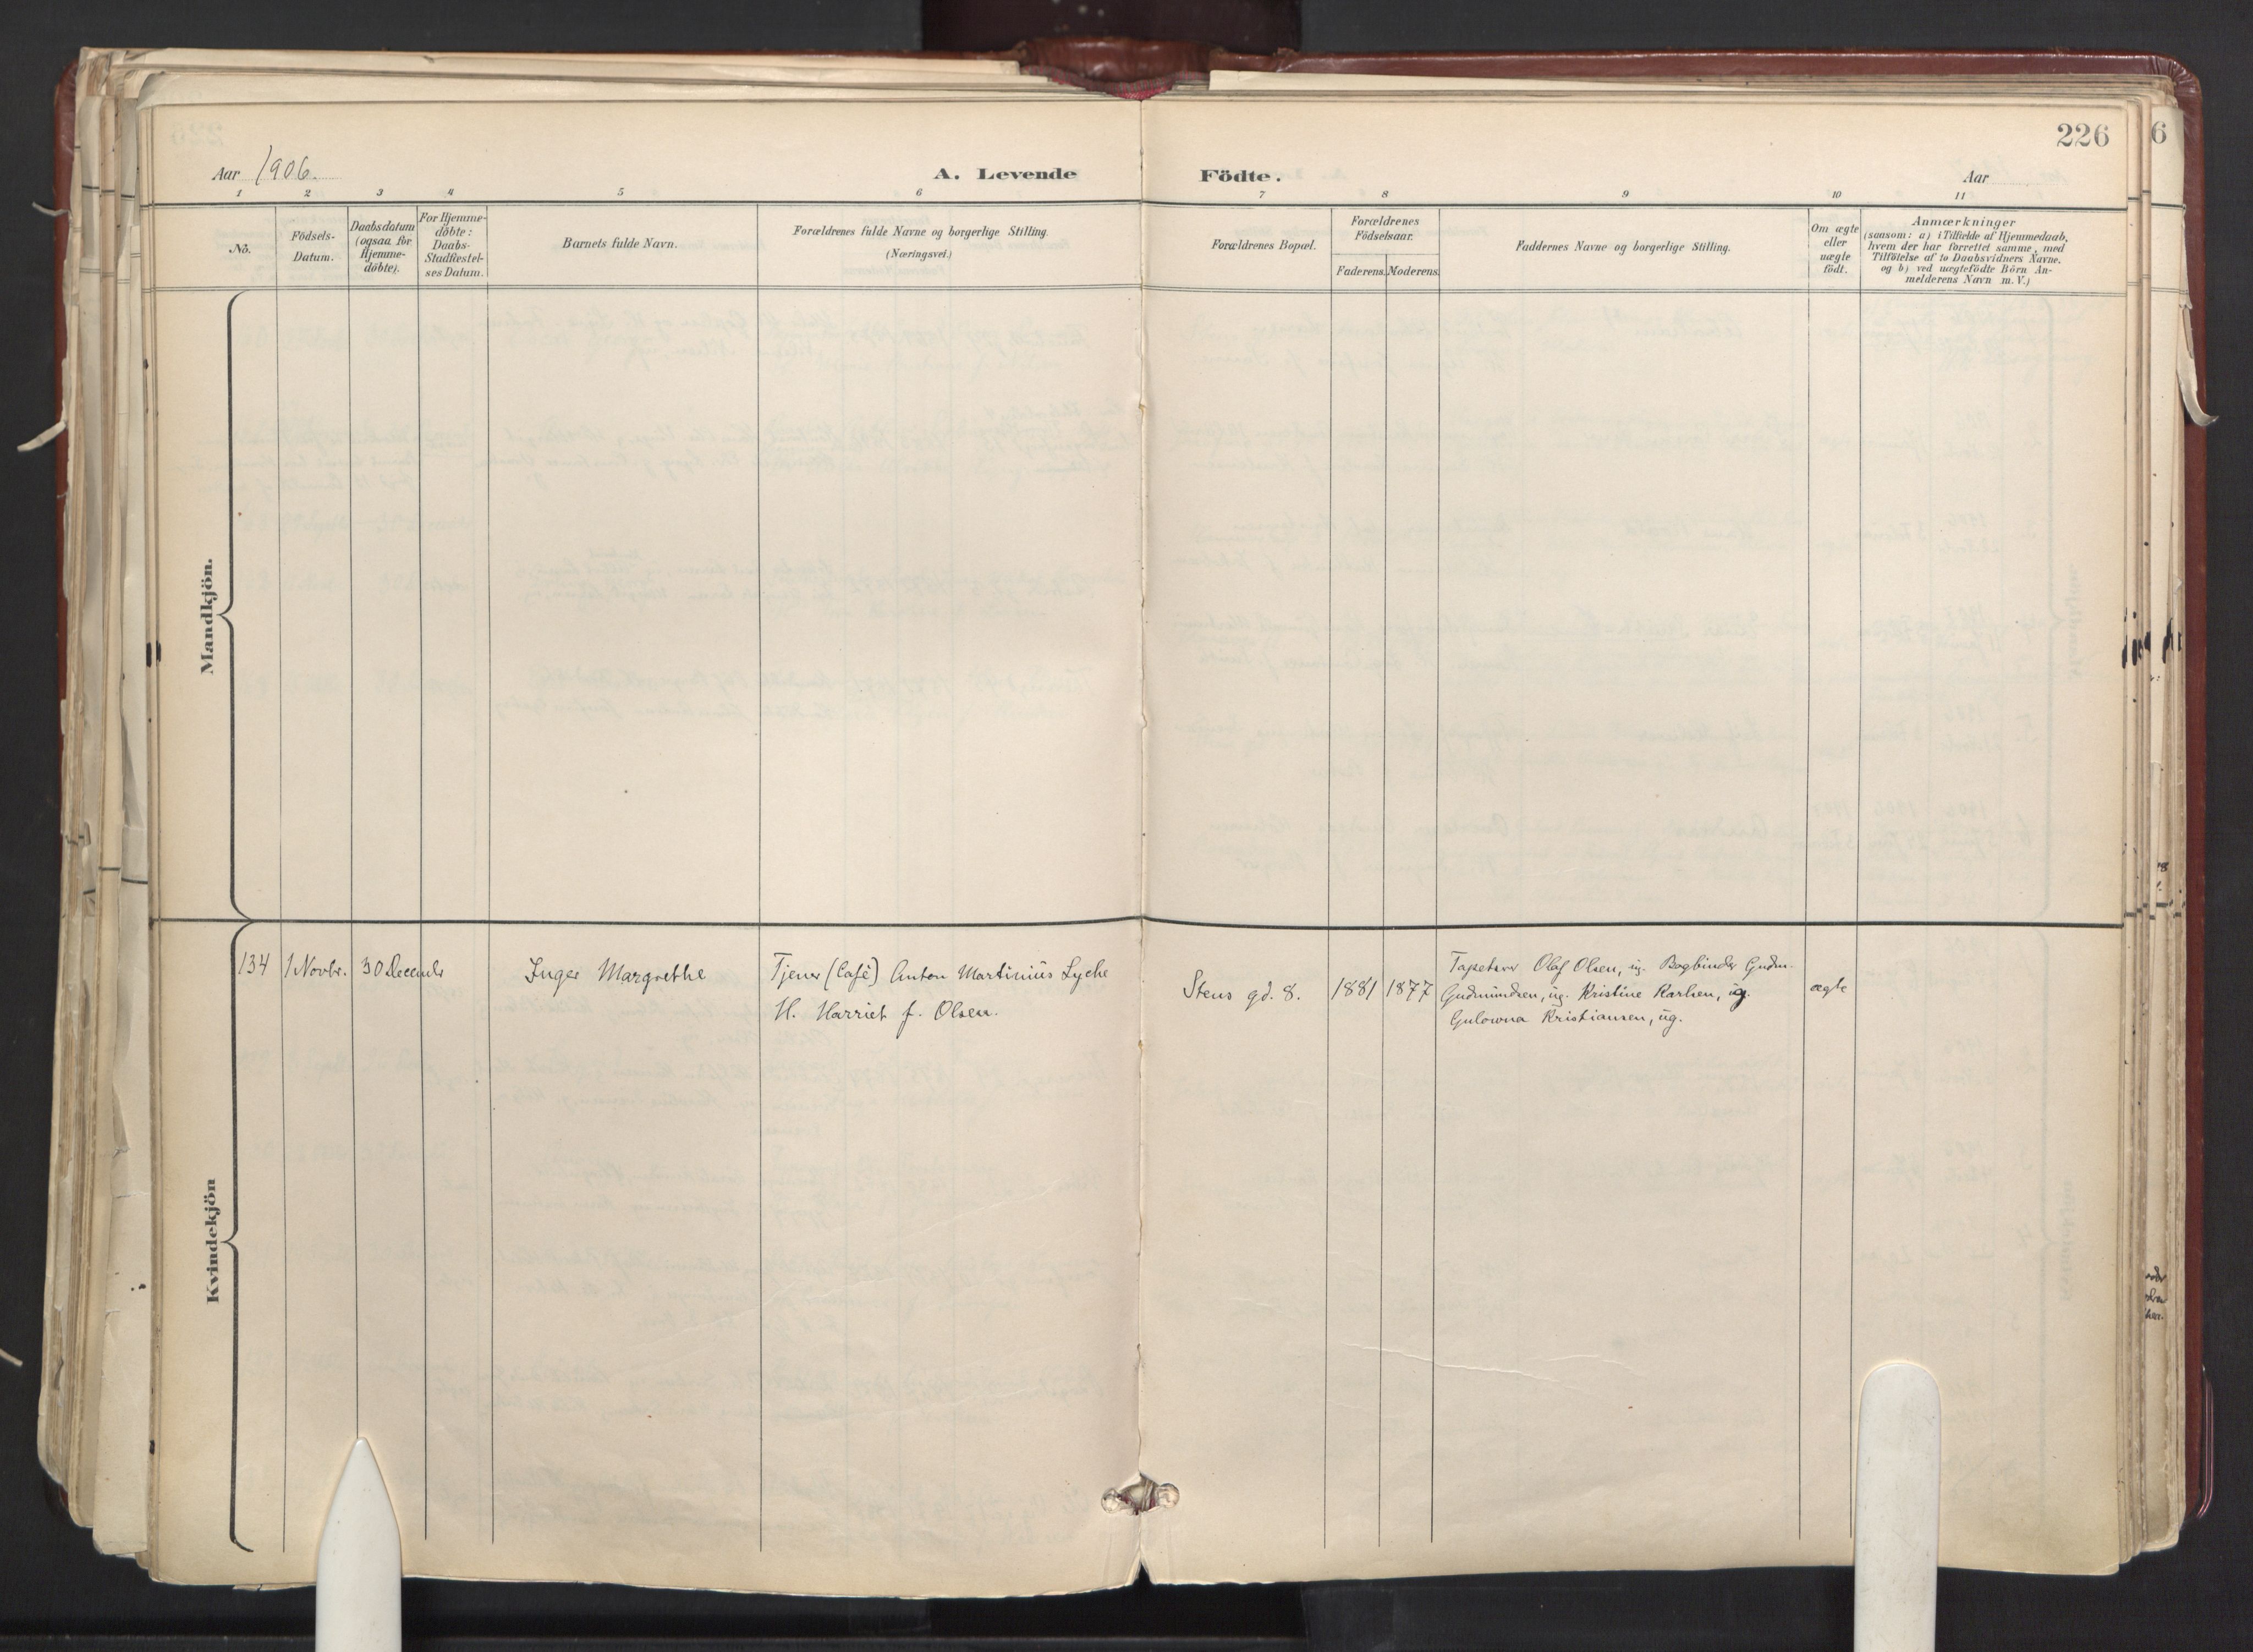 226
6
Aar 1906.
A. Levende
Födte.
Aar
1 2 3 4 5 6 7 8 9 10 11
No.
Födsels-
Datum.
Daabsdatum
(ogsaa for
Hjemme-
döbte).
For Hjemme-
döbte:
Daabs-
Stadfæstel-
ses Datum.
Barnets fulde Navn.
Forældrenes fulde Navne og borgerlige Stilling.
(Næringsvei.)
Forældrenes Bopæl.
Forældrenes
Födselsaar.
Faderens. Moderens.
Faddernes Navne og borgerlige Stilling.
Om ægte
eller
uægte
födt.
Anmærkninger
(saasom: a) i Tilfælde af Hjemmedaab,
hvem der har forrettet samme, med
Tilföielse af to Daabsvidners Navne,
og b) ved uægtefödte Börn An-
melderens Navn m. V.)
Mandkjön.
Kvindekjön
134
1 Novbr.
30 Decembr
Inger Margrethe
Tjener (Café) Anton Martinius Lyche
H. Harriet f. Olsen.
Stens gd. 8.
1881
1877
Tapetserer Olaf Olsen, ug. Bogbinder Gudm.
Gudmundsen, ug. Kristine Karlsen, ug.
Gulowna Kristiansen, ug.
ægte